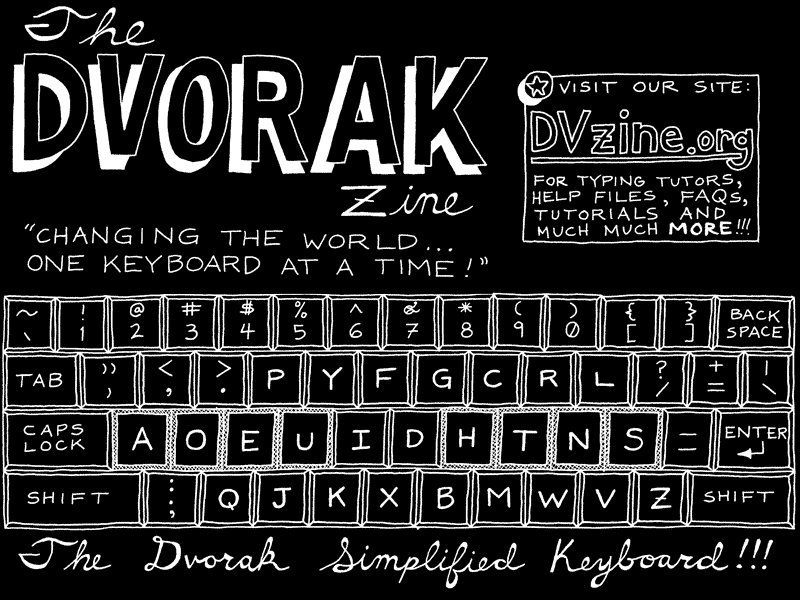 The
DVORAK
Zine
"CHANGING THE WORLD...
ONE KEYBOARD AT A TIME!"
VISIT OUR SITE:
DVzine.org
FOR TYPING TUTORS,
HELP FILES, FAQS,
TUTORIALS AND
MUCH MUCH MORE!!!
~ ! @ # $ % ^ & * ( ) { } BACK
` 1 2 3 4 5 6 7 8 9 0 [ ] SPACE
TAB " < > P Y F G C R L ? + |
' , . / = \
CAPS LOCK A O E U I D H T N S — ENTER
-
SHIFT : Q J K X B M W V Z SHIFT
;
The Dvorak Simplified Keyboard!!!